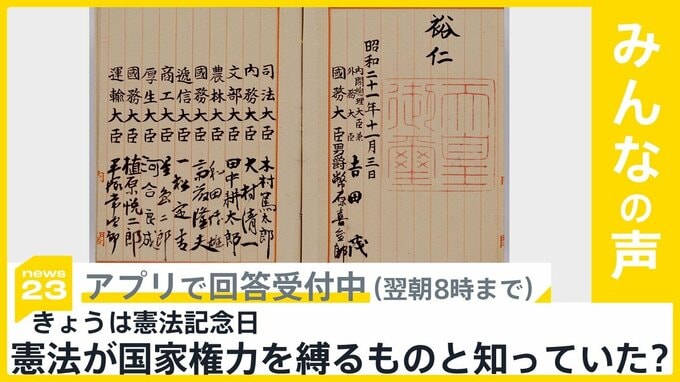 裕仁
天皇
御璽
昭和二十一年十一月三日
内閣総理大臣兼
外務大臣 吉田茂
國務大臣 男爵 幣原喜重郎
司法大臣 木村篤太郎
内務大臣 大村清一
文部大臣 田中耕太郎
農林大臣 和田博雄
國務大臣 斎藤隆夫
遞信大臣 一松定吉
商工大臣 星島二郎
厚生大臣 河合良成
國務大臣 植原悦二郎
運輸大臣 平塚常次郎
みんなの声
news
23
アプリで回答受付中(翌朝8時まで)
きょうは憲法記念日
憲法が国家権力を縛るものと知っていた?